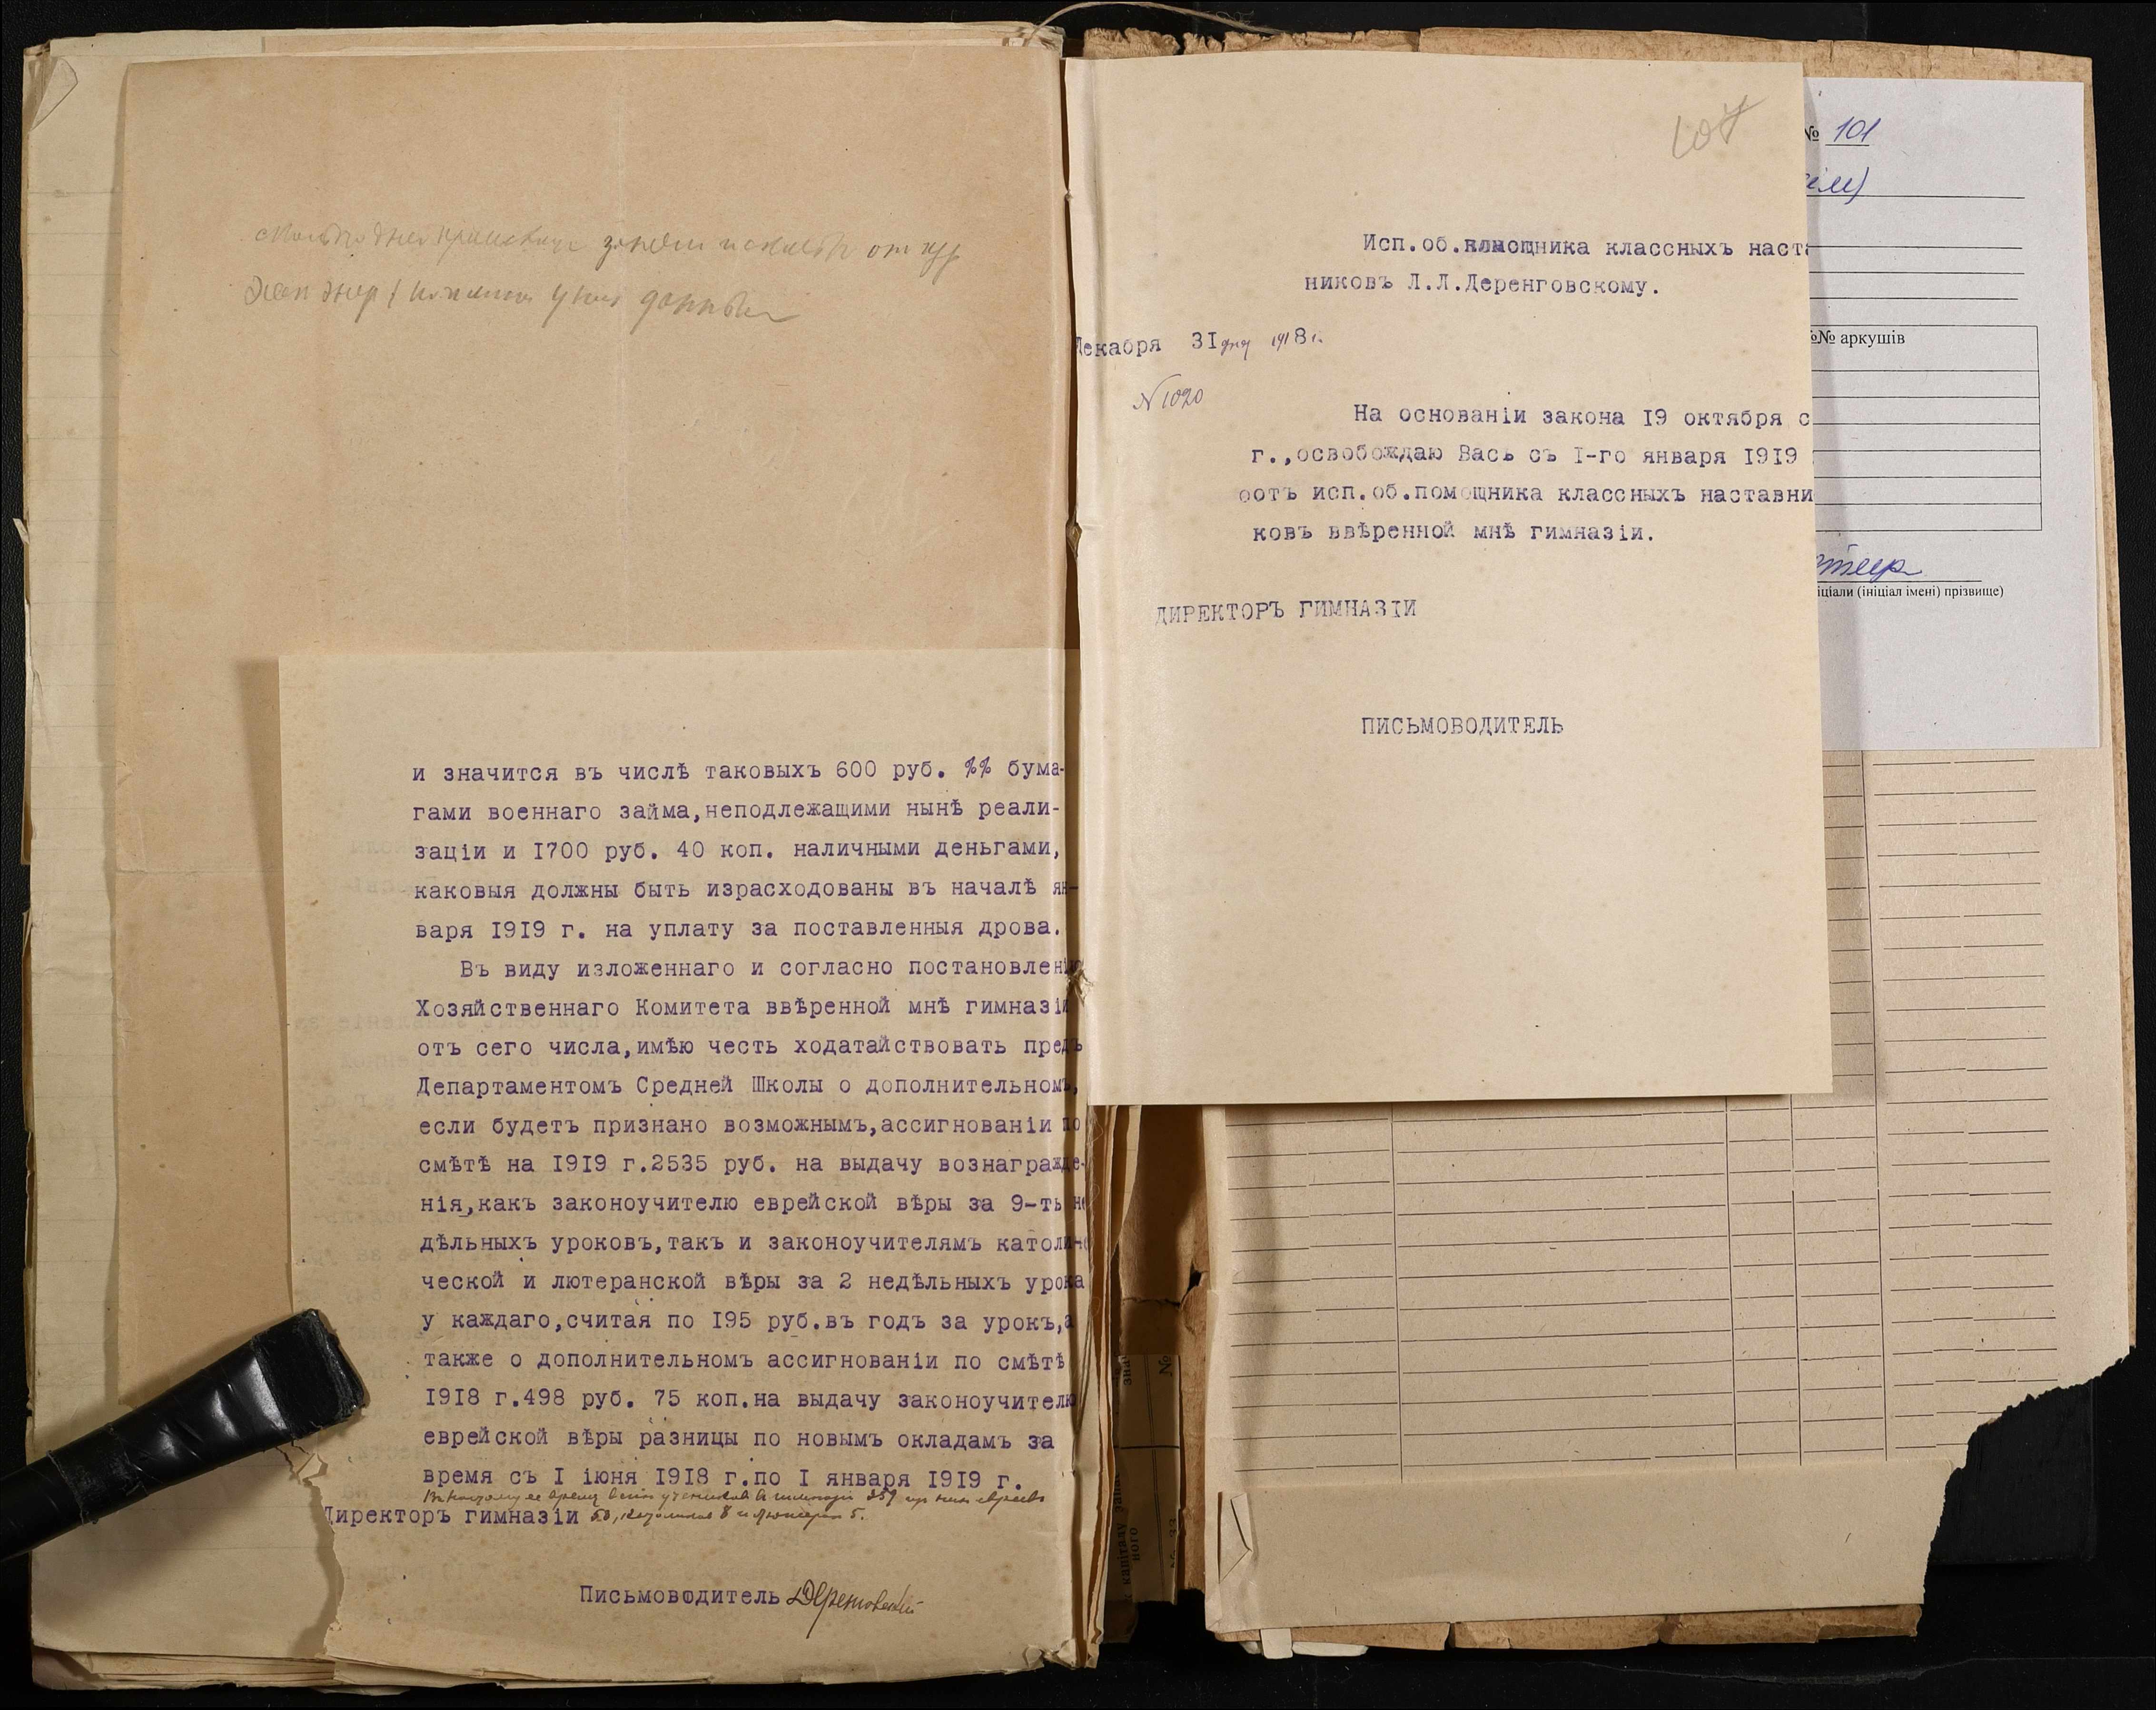 и значится въ числѣ таковыхъ 600 руб. %% бума-
гами военнаго займа,неподлежащими нынѣ реали-
заціи и I700 руб. 40 коп. наличными деньгами,
каковыя должны быть израсходованы въ началѣ ян-
варя I9I9 г. на уплату за поставленныя дрова.
Въ виду изложеннаго и согласно постановлені
Хозяйственнаго Комитета ввѣренной мнѣ гимназіи
отъ сего числа,имѣю честь ходатайствовать предъ
Департаментомъ Средней Школы о дополнительномъ,
если будетъ признано возможнымъ,ассигнованіи по
смѣтѣ на I9I9 г.2535 руб. на выдачу вознагражде-
нія,какъ законоучителю еврейской вѣры за 9-ть не
дѣльныхъ уроковъ,такъ и законоучителямъ католи-
ческой и лютеранской вѣры за 2 недѣльныхъ урока
у каждаго,считая по I95 руб.въ годъ за урокъ,а
также о дополнительномъ ассигнованіи по смѣтѣ
I9I8 г.498 руб. 75 коп.на выдачу законоучителю
еврейской вѣры разницы по новымъ окладамъ за
время съ I іюня I9I8 г.по I января I9I9 г.
Директоръ гимназіи
Письмоводитель
107
Исп.об.помощника классныхъ наста
никовъ Л.Л.Деренговскому.
Декабря 3I дня 1918 г.
N 1020
На основаніи закона I9 октября с
г.,освобождаю Васъ съ I-го января I9I9
оотъ исп.об.помощника классныхъ наставни
ковъ ввѣренной мнѣ гимназіи.
ДИРЕКТОРЪ ГИМНАЗІИ
ПИСЬМОВОДИТЕЛЬ
№ 101
№№ аркушів
іціали (ініціал імені) прізвище)
капіталу
ного